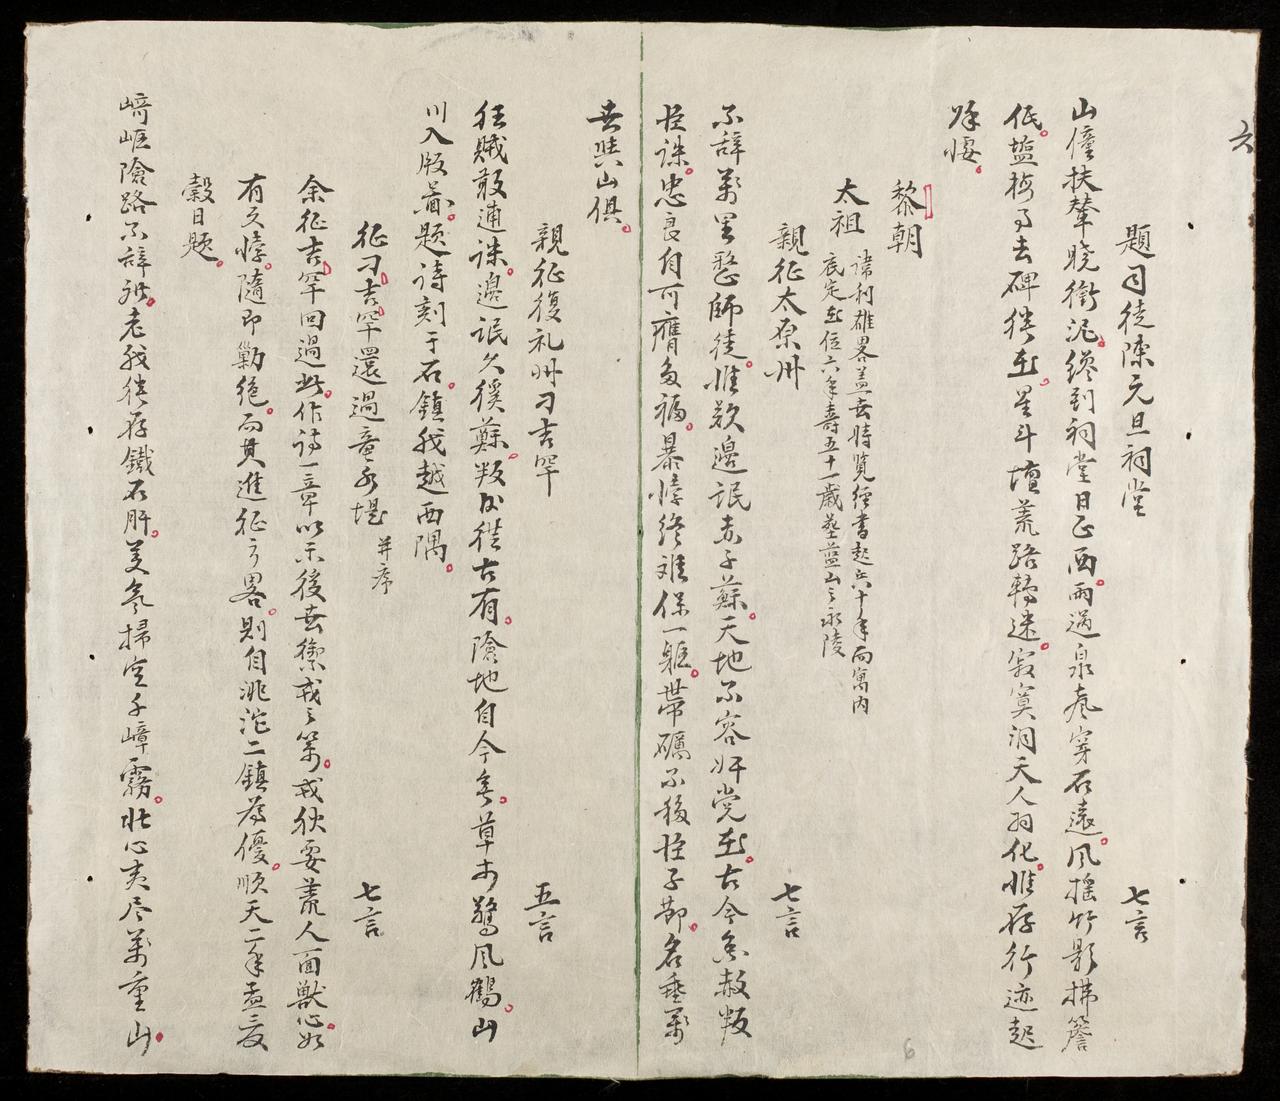 六
題司徒陳元旦祠堂 七言
山僮扶輦曉衝泥纔到祠堂日正西雨過泉声穿石遠風搖竹影拂簷
低塩梅事去碑猶在星斗壇荒路轉迷寂寞洞天人羽化惟存行迹起
黎朝
太祖 諱利雄畧盖世時覽經書起兵十年而寓内
底定在位六年壽五十一歲葬藍山之永陵
親征太原州 七言
不辞萬里整師徒惟欲邊氓赤子蘇天地不容奸党在古今奚赦叛
臣誅忠良自可膺多福暴悖終难保一軀帶礪不移臣子節名垂萬
世與山俱
親征復礼州刁吉罕 五言
狂賊敢逋誅邊氓久徯蘇叛臣從古有險地自今無草木驚風鶴山
川入版啚題詩刻于石鎮我越西隅
征刁吉罕還過竜水堤 并序 七言
余征吉罕回過此作詩一章以示後世禦戎之策戎狄要荒人面獸心如
有反悖隨即勦絶而其進征方畧則自洮沱二鎮為優順天二年孟夏
穀日題
﨑嶇險路不辞难老我猶存鐵石肝 氣掃空千嶂霧壮心夷尽萬重山